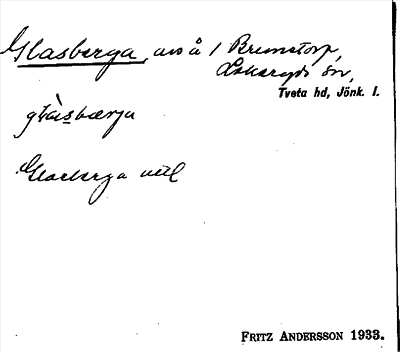 Glasberga, avs å 1 Bremstorp,
Lekeryds sn,
Tveta hd, Jönk. l.
glàsbærja
Glasberga uttl
FRITZ ANDERSSON 1933.